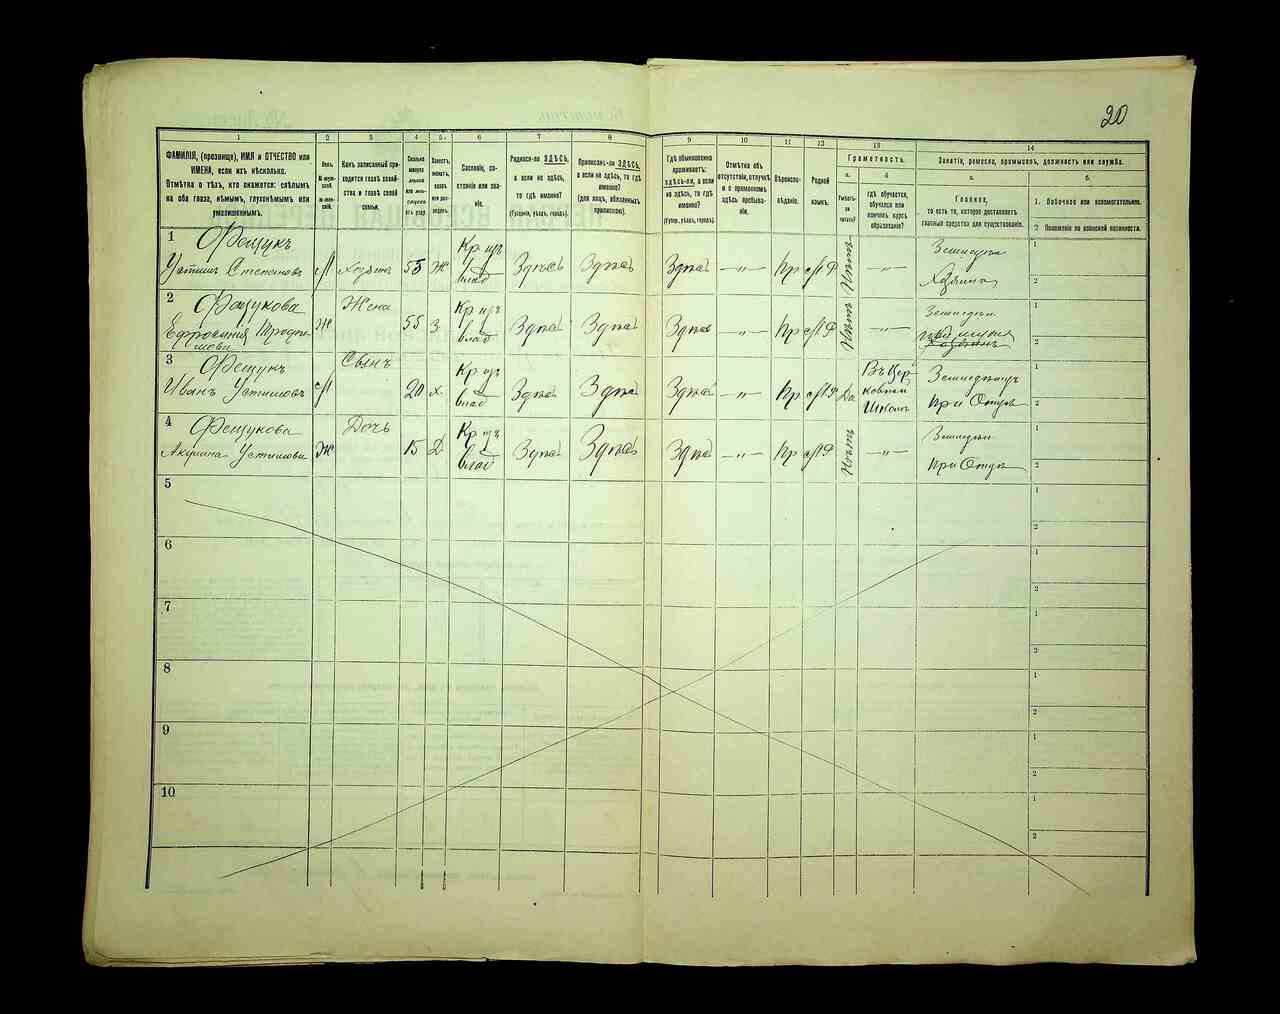 20
1 2 3 4 5 6 7 8 9 10 11 12 13 14
ФАМИЛІЯ, (прозвище), ИМЯ и ОТЧЕСТВО или
ИМЕНА, если ихъ нѣсколько.
Отмѣтка о тѣхъ, кто окажется: слѣпымъ
на оба глаза, нѣмымъ, глухонѣмымъ или
умалишеннымъ.
Полъ.
М-муж-
ской.
Ж-жен-
скій.
Какъ записанный при-
ходится главѣ хозяй-
ства и главѣ своей
семьи.
Сколько
минуло
лѣтъ
Холостъ,
женатъ,
вдовъ
или раз-
веденъ.
Сословіе, со-
стояніе или зва-
ніе.
Родился-ли ЗДѢСЬ,
а если не здѣсь,
то гдѣ именно?
(Губернія, уѣздъ, городъ).
Приписанъ-ли ЗДѢСЬ,
а если не здѣсь, то гдѣ
именно?
(Для лицъ, обязанныхъ
припискою).
Гдѣ обыкновенно
проживаетъ:
здѣсь-ли, а если
не здѣсь, то гдѣ
именно?
(Губер., уѣздъ, городъ).
Отмѣтка объ
отсутствіи, отлучкѣ
и о временномъ
здѣсь пребыва-
ніи.
Вѣроиспо-
вѣданіе.
Родной
языкъ.
Грамотность.
а. б.
Умѣетъ-
ли
читать?
гдѣ обучается,
обучался или
кончилъ курсъ
образованія?
Занятіе, ремесло, промыселъ, должность или служба.
а. б.
Главное,
то есть то, которое доставляетъ
главныя средства для существованія.
1. Побочное или вспомогательное.
2. Положеніе по воинской повинности.
1 Фещукъ
Устимъ Степановъ М Хозяинъ 55 Ж Кр изъ влад Здѣсь Здѣсь Здѣсь —"— Пр М Р —"— Земледѣл Хозяинъ
2 Фещукова
Жена Ж 55 З Кр изъ влад Здѣсь Здѣсь Здѣсь —"— Пр М Р —"— Земледѣл
3 Фещукъ
Иванъ Устимовъ М Сынъ 20 Х Кр изъ влад Здѣсь Здѣсь Здѣсь —"— Пр М Р Да Въ Цер
ковной
Школѣ При Отцѣ
4 Фещукова
Акулина Устимова Ж Дочь 15 Д Кр изъ влад Здѣсь Здѣсь Здѣсь —"— Пр М Р —"— Земледѣл При Отцѣ
5
6
7
8
9
10